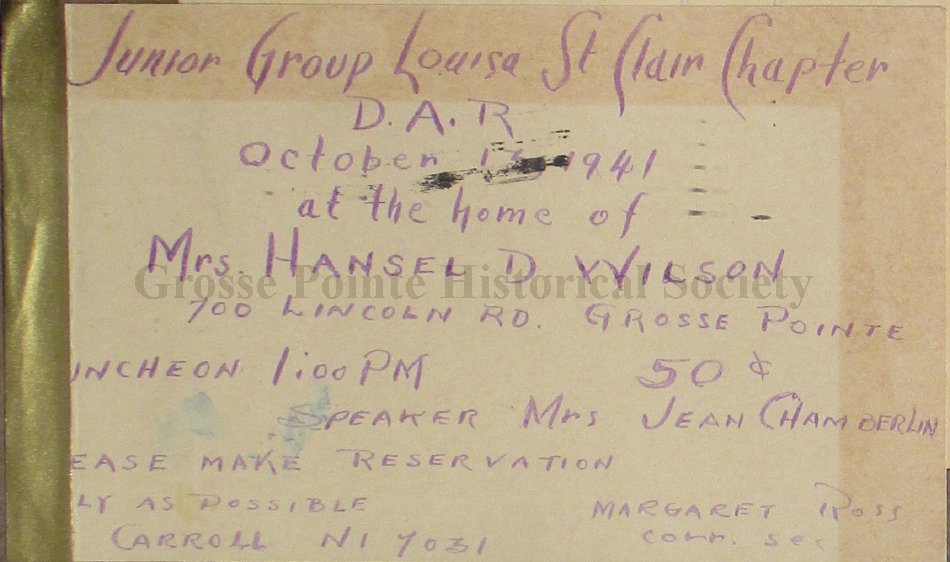 Junior Group Louisa St Clair Chapter
D.A.R
October 1941
at the home of
Mrs. HANSEL D WILSON
Grosse Pointe Historical Society
700 LINCOLN RD. GROSSE POINTE
UNCHEON 1:00 PM 50 ¢
SPEAKER Mrs JEAN CHAMBERLIN
EASE MAKE RESERVATION
LY AS POSSIBLE MARGARET ROSS
CARROLL NI 7031 corr. sec